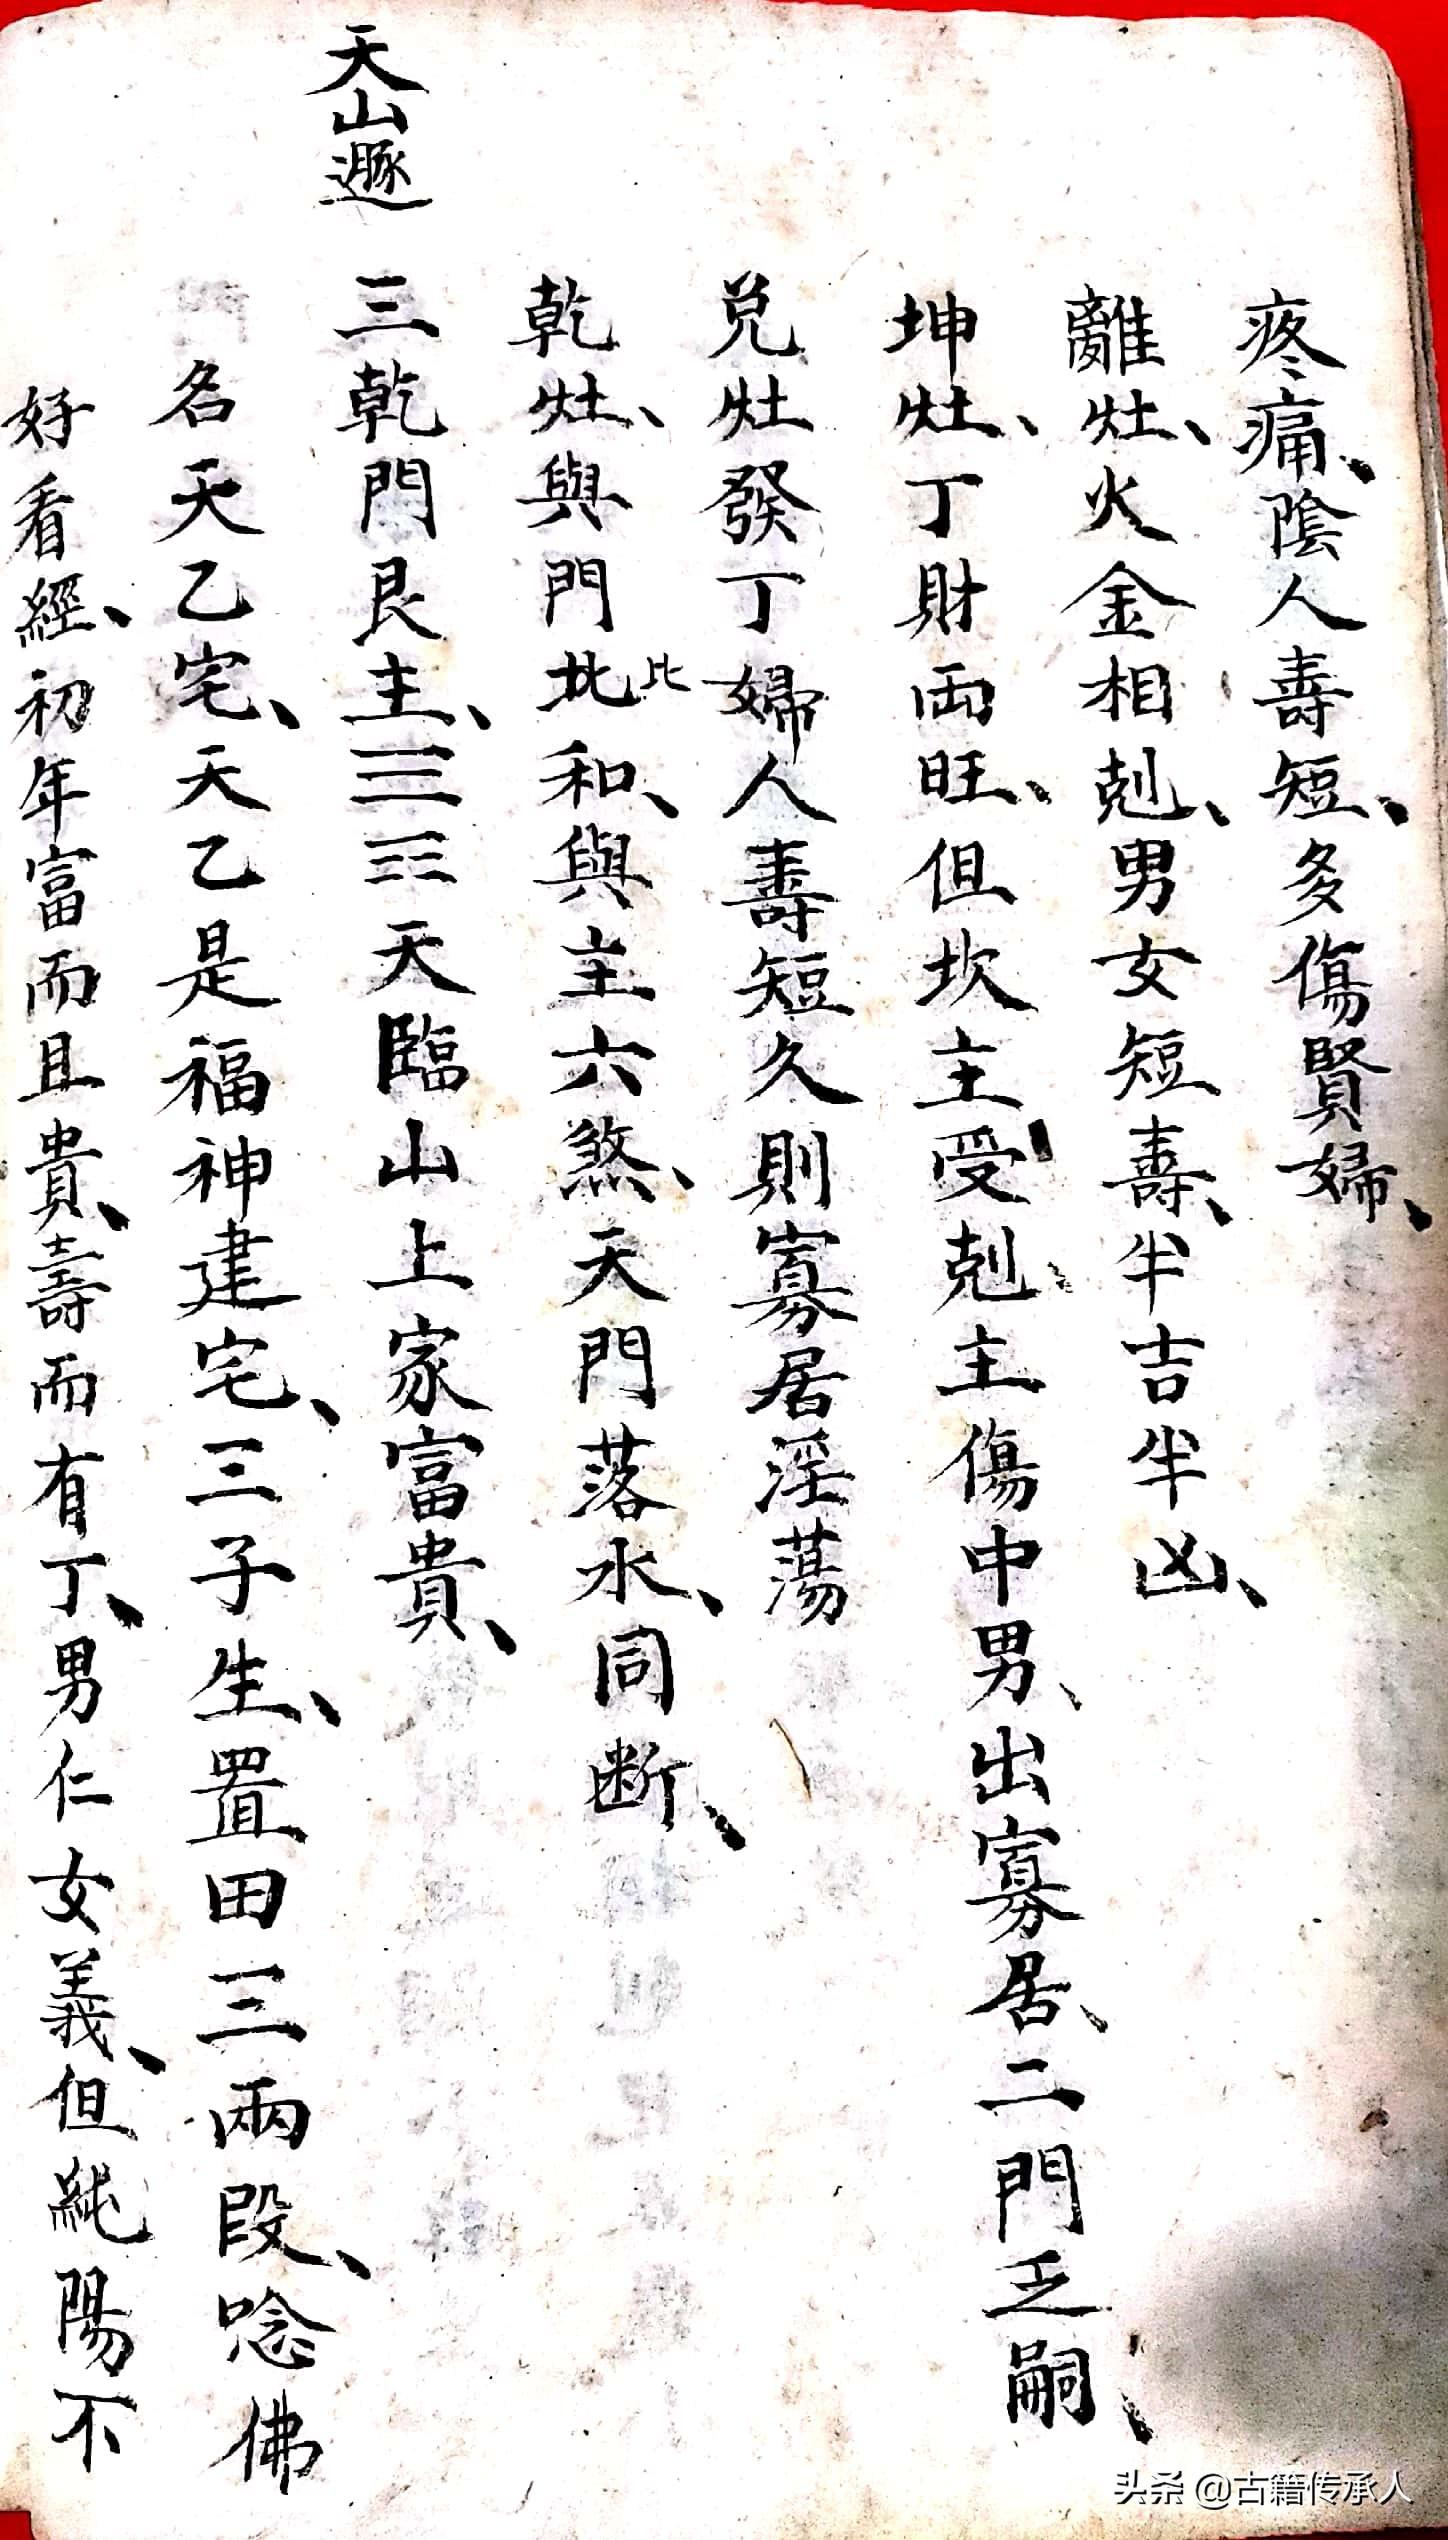 疼痛、陰人壽短、多傷賢婦、
離灶、火金相剋、男女短壽、半吉半凶、
坤灶、丁財両旺、但坎主受剋、主傷中男、出寡居、二門乏嗣、
兌灶發丁婦人壽短久則寡居淫蕩
乾灶、與門北比和、與主六煞、天門落水、同断、
天山遯
三乾門艮主、☰☶天臨山上家富貴、
名天乙宅、天乙是福神建宅、三子生、置田三兩段、唸佛
好看經、初年富而且貴、壽而有丁、男仁女義、但純陽不
头条 @古籍传承人